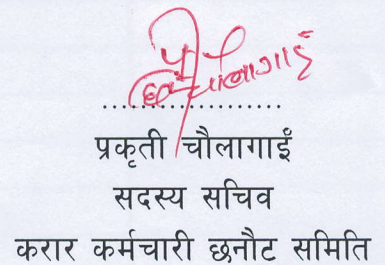 प्रकृती चौलागाईं
सदस्य सचिव
करार कर्मचारी छनौट समिति